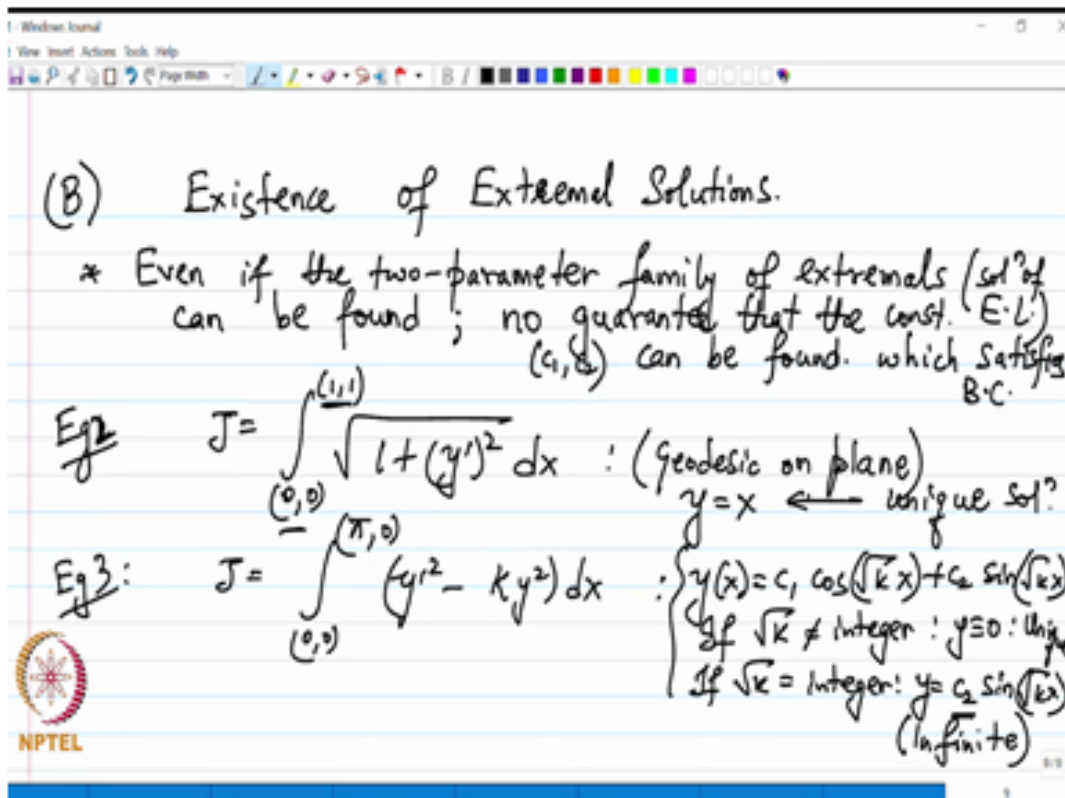 - Windows Journal
View Insert Actions Tools Help
Page Width
B I
(B) Existence of Extremal Solutions.
* Even if the two-parameter family of extremals (solⁿ of E.L.)
can be found ; no guaranted that the const.
(c₁, c₂) can be found. which satisfies
B.C.
Eg2 J = ∫_(0,0)^(1,1) √(1+(y')²) dx : (Geodesic on plane)
y = x ← unique solⁿ
Eg3: J = ∫_(0,0)^(π,0) (y'² - Ky²) dx : { y(x) = c₁ cos(√k x) + c₂ sin(√k x)
If √k ≠ integer : y≡0 :
If √k = integer: y = c₂ sin(√k x)
(Infinite)
NPTEL
9